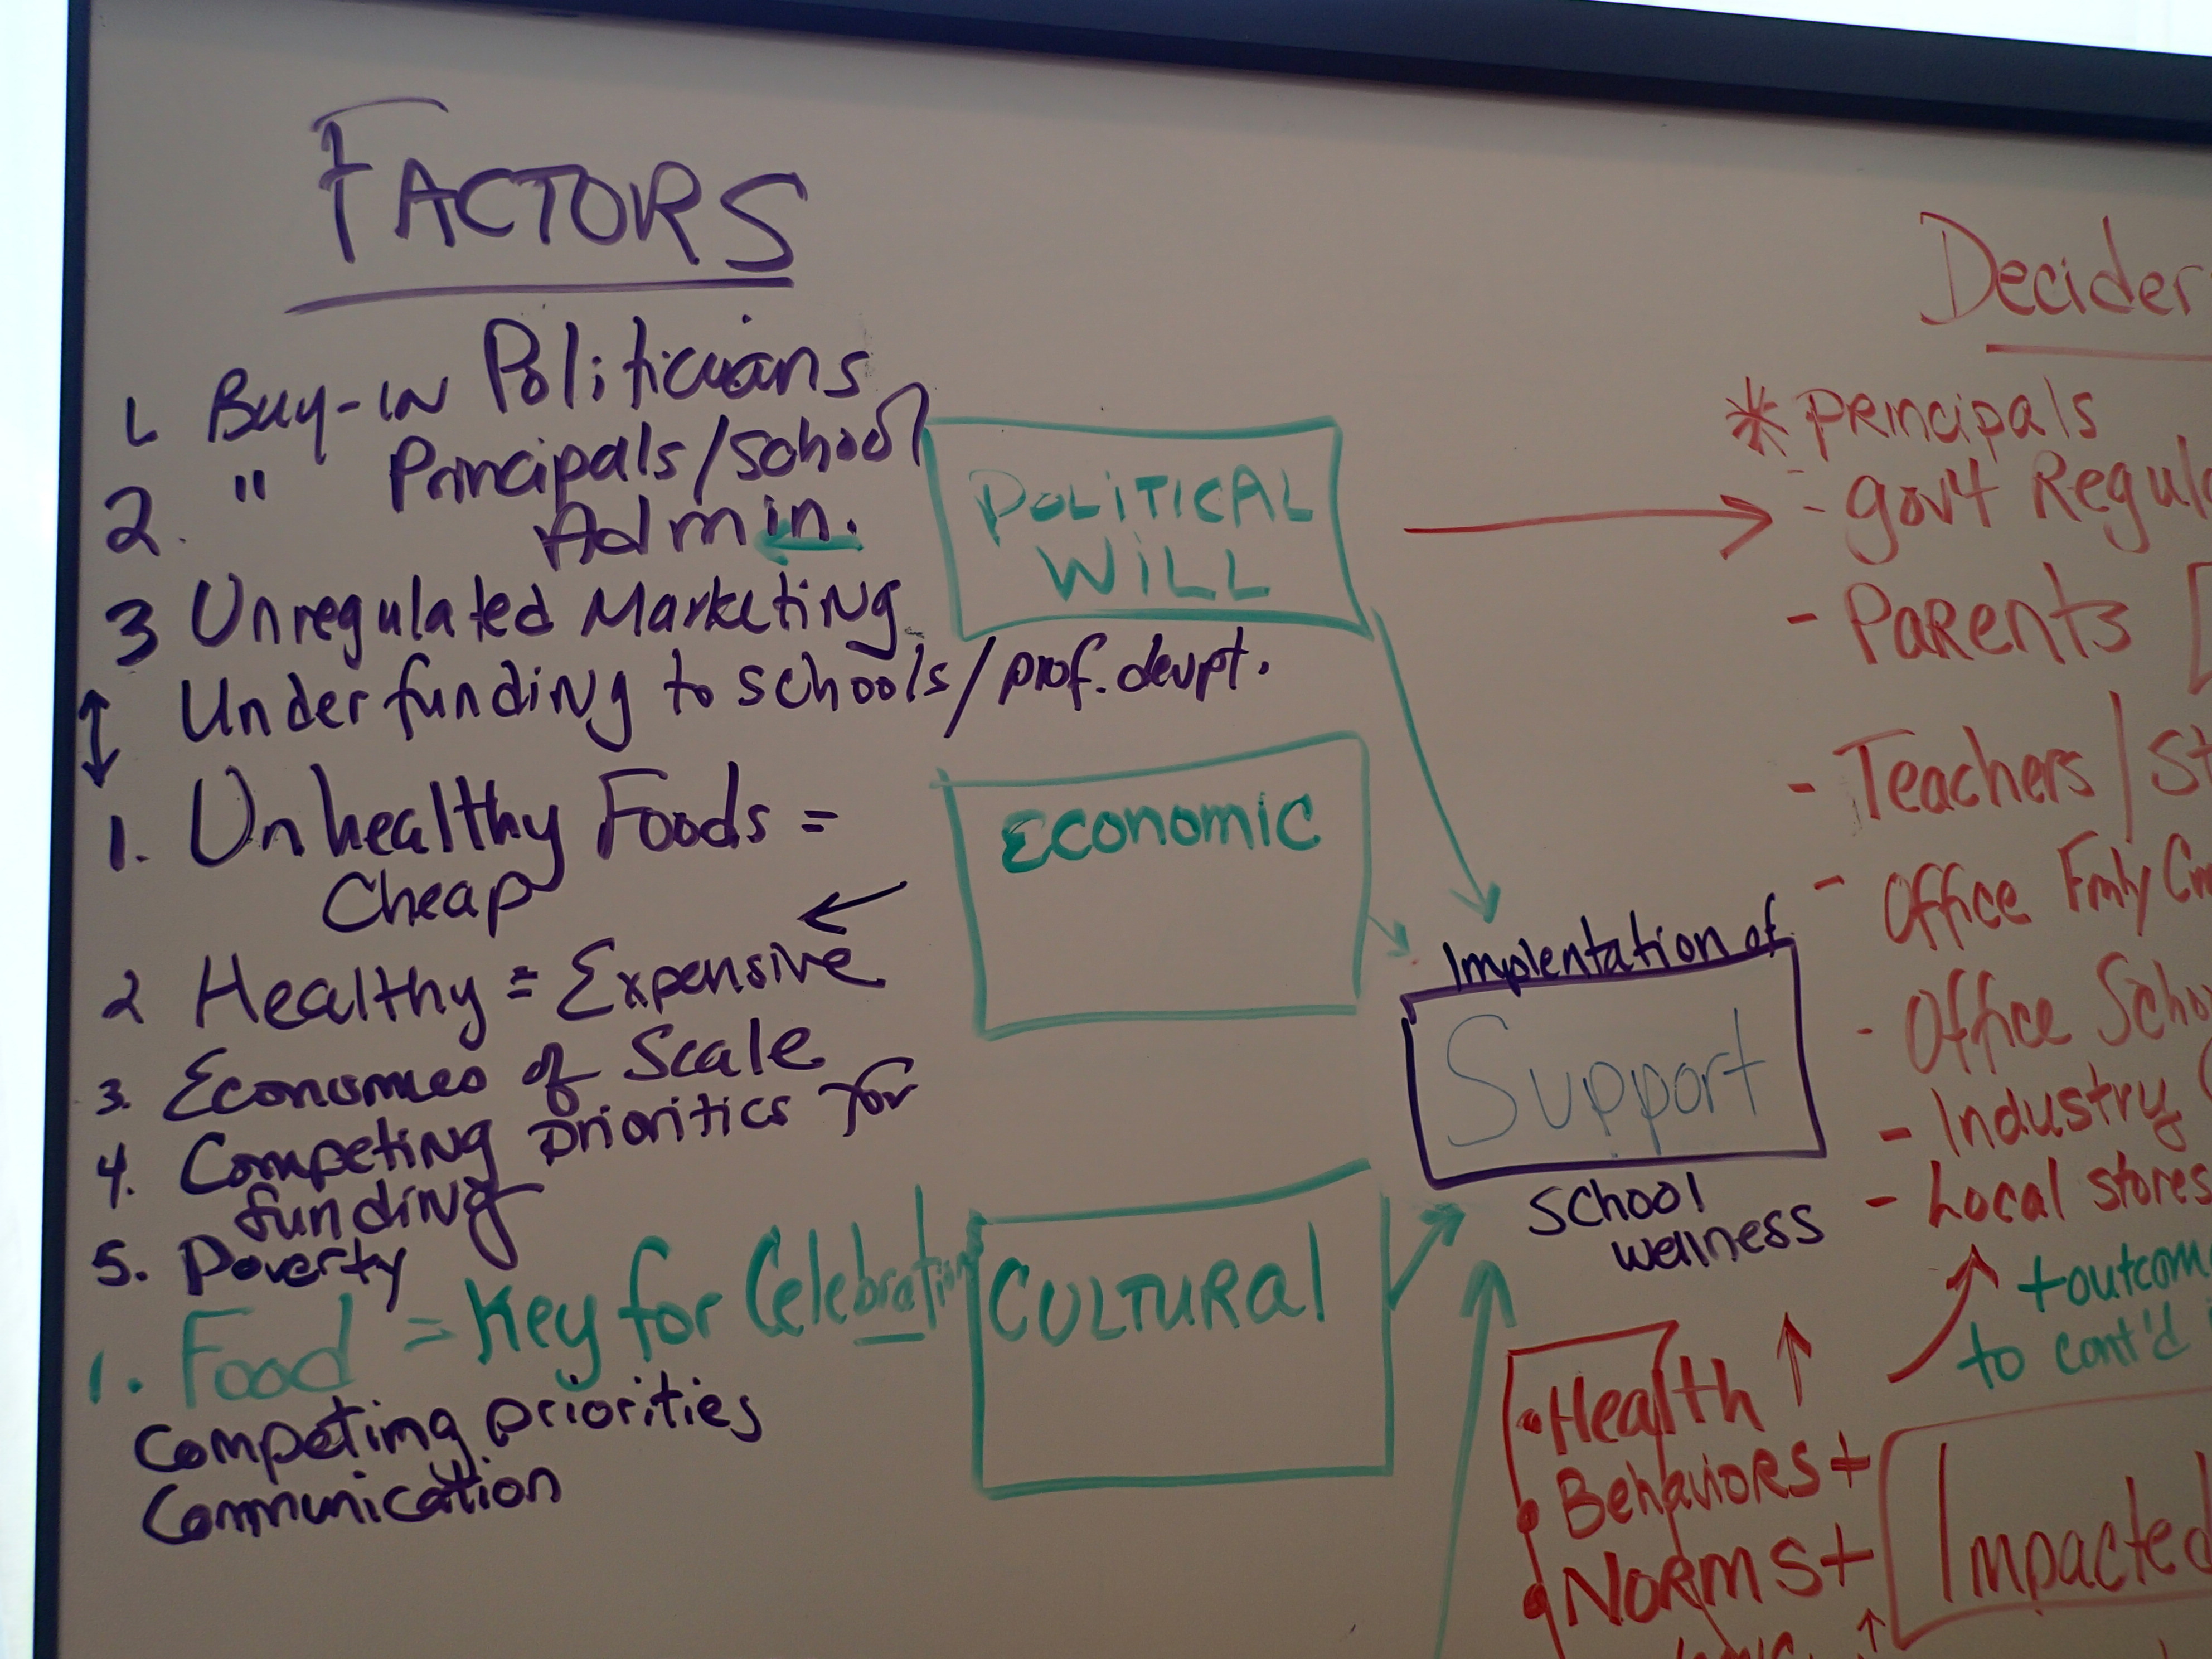 FACTORS
1. Buy-IN Politicians
2. " Principals/School
Admin.
3 Unregulated Marketing
Under funding to schools/prof. devpt.
1. Unhealthy Foods =
Cheap
2 Healthy = Expensive
3. Economies of Scale
4. Competing priorities for
funding
5. Poverty
1. Food = Key for Celebration
Competing priorities
Communication
POLITICAL
WILL
Economic
CULTURAL
Implentation of
Support
School
wellness
Decider
* Principals
- gov't Regul
- Parents [
- Teachers/St
- Office Fmly
- Office Scho
- Industry (
- Local stores
+outcom
to cont'd
• Health ↑
• Behaviors +
• NORMS +
Impacted